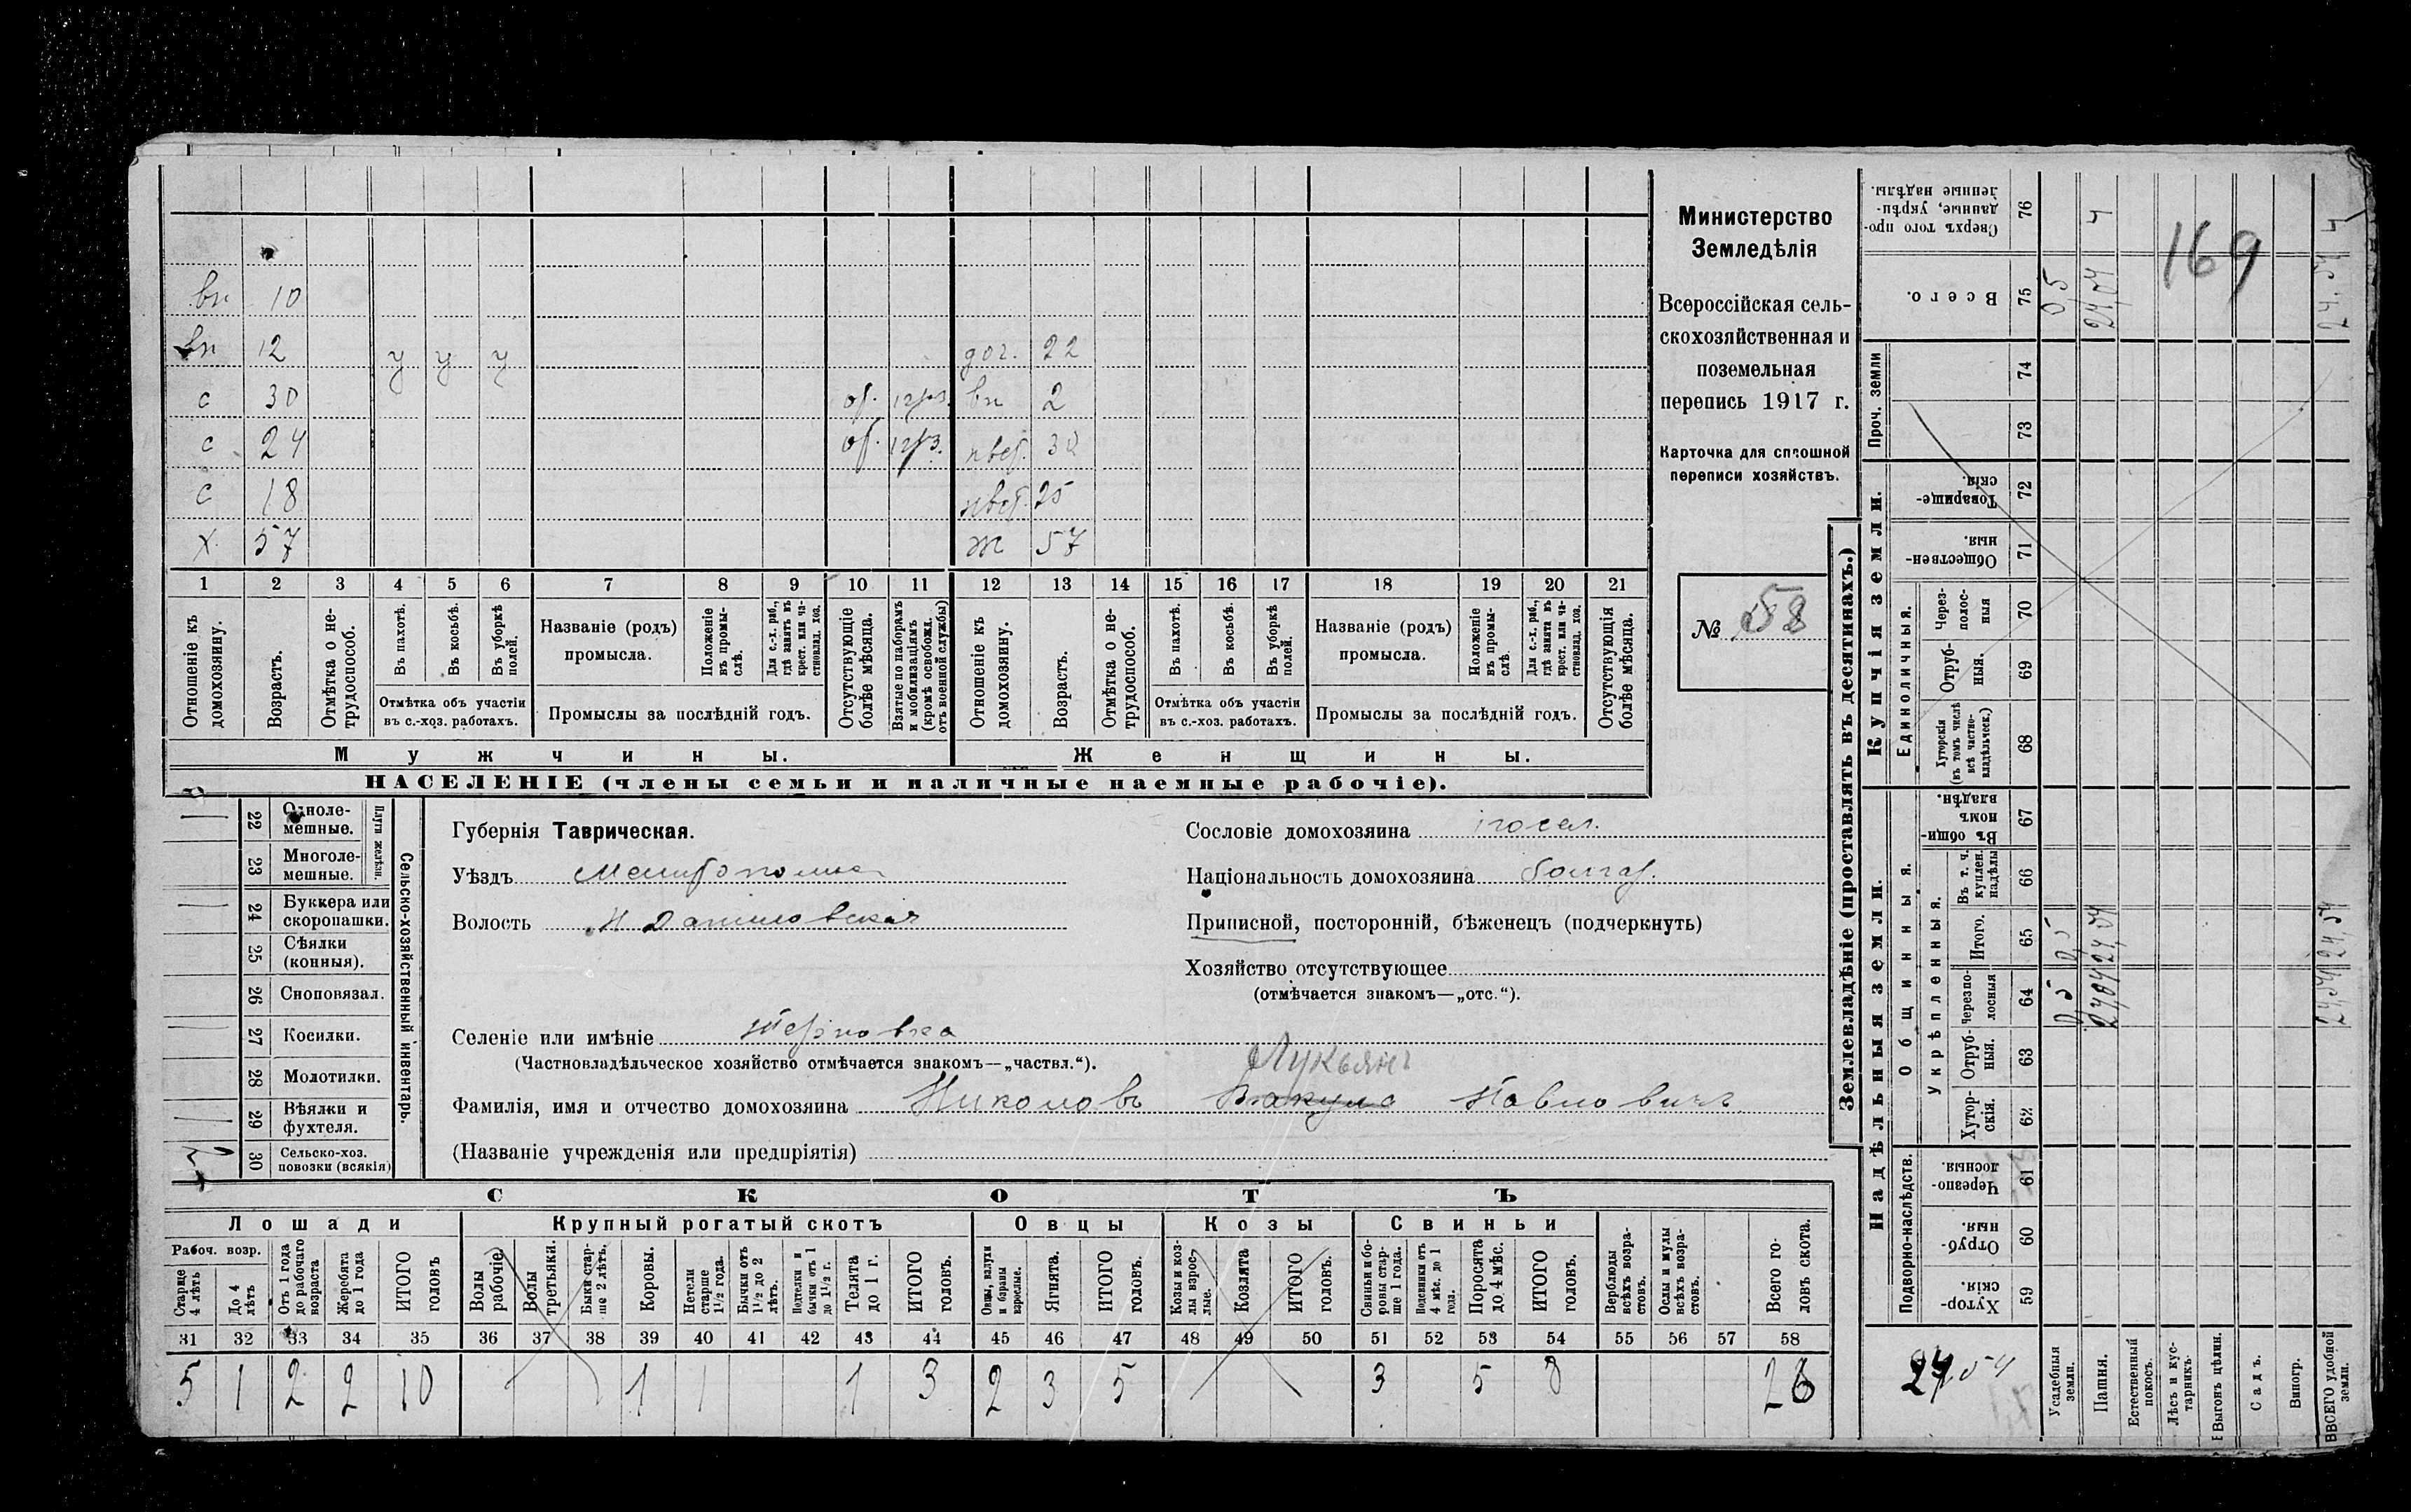 вн 10
вн 12 у у у доч. 22
с 30 вн 2
с 24 30
с 18 25
х 57 ж 57
1 2 3 4 5 6 7 8 9 10 11 12 13 14 15 16 17 18 19 20 21
Отношеніе къ домохозяину.
Возрастъ.
Отмѣтка о не-трудоспособ.
Въ пахотѣ.
Въ косьбѣ.
Въ уборкѣ полей.
Отмѣтка объ участіи
въ с.-хоз. работахъ.
Названіе (родъ)
промысла.
Положеніе въ промы-слѣ.
Для с.-х. раб., гдѣ занятъ въ крест. или ча-стновлад. хоз.
Промыслы за послѣдній годъ.
Отсутствующіе болѣе мѣсяца.
Взятые по наборамъ и мобилизаціямъ (кромѣ освобожд. отъ военной службы)
Отношеніе къ домохозяину.
Возрастъ.
Отмѣтка о не-трудоспособ.
Въ пахотѣ.
Въ косьбѣ.
Въ уборкѣ полей.
Отмѣтка объ участіи
въ с.-хоз. работахъ.
Названіе (родъ)
промысла.
Положеніе въ промы-слѣ.
Для с.-х. раб., гдѣ занята въ крест. или ча-стновлад. хоз.
Промыслы за послѣдній годъ.
Отсутствующія болѣе мѣсяца.
Мужчины. Женщины.
НАСЕЛЕНІЕ (члены семьи и наличные наемные рабочіе).
Министерство
Земледѣлія
Всероссійская сель-
скохозяйственная и
поземельная
перепись 1917 г.
Карточка для сплошной
переписи хозяйствъ.
№ 58
22 Одноле-мешные.
23 Многоле-мешные.
Плуги желѣзн.
24 Буккера или скоропашки.
25 Сѣялки (конныя).
26 Сноповязал.
27 Косилки.
28 Молотилки.
29 Вѣялки и фухтеля.
30 Сельско-хоз. повозки (всякія)
Сельско-хозяйственный инвентарь.
Губернія Таврическая.
Уѣздъ
Волость Н Даниловская
Селеніе или имѣніе Терновка
(Частновладѣльческое хозяйство отмѣчается знакомъ—„частвл.“).
Лукьянъ
Фамилія, имя и отчество домохозяина Николовъ Вакула Павловичъ
(Названіе учрежденія или предпріятія)
Сословіе домохозяина посел.
Національность домохозяина болгар.
Приписной, посторонній, бѣженецъ (подчеркнуть)
Хозяйство отсутствующее
(отмѣчается знакомъ—„отс.“).
СКОТЪ
Лошади Крупный рогатый скотъ Овцы Козы Свиньи
Рабоч. возр.
Старше 4 лѣтъ
До 4 лѣтъ
Отъ 1 года до рабочаго возраста
Жеребята до 1 года
ИТОГО головъ
Волы рабочіе.
Волы третьяки.
Быки стар-ше 2 лѣтъ.
Коровы.
Нетели старше 1½ года.
Бычки отъ 1½ до 2 лѣтъ.
Подтелки и бычки отъ 1 до 1½ г.
Телята до 1 г.
ИТОГО головъ.
Овцы, валухи и бараны взрослые.
Ягнята.
ИТОГО головъ.
Козы и коз-лы взрос-лые.
Козлята
ИТОГО головъ.
Свиньи и бо-ровы стар-ше 1 года.
Подсвинки отъ 4 мѣс. до 1 года.
Поросята до 4 мѣс.
ИТОГО головъ.
Верблюды всѣхъ возра-стовъ.
Ослы и мулы всѣхъ возра-стовъ.
Всего го-ловъ скота.
31 32 33 34 35 36 37 38 39 40 41 42 43 44 45 46 47 48 49 50 51 52 53 54 55 56 57 58
5 1 2 2 10 1 1 1 3 2 3 5 3 5 8 26
Землевладѣніе (проставлять въ десятинахъ.)
76 Сверхъ того про-данные, укрѣп-ленные надѣлы.
75 Всего.
Проч. земли
74
73
Купчія земли.
72 Товарище-скія.
71 Обществен-ныя.
Единоличныя.
70 Через-полос-ныя
69 Отруб-ныя.
68 Хуторскія (въ томъ числѣ всѣ частно-владѣльческ.)
Надѣльныя земли.
Общинныя.
67 Въ общи-номъ владѣн.
Укрѣпленныя.
66 Въ т. ч. куплен. надѣлы
65 Итого.
64 Черезпо-лосныя
63 Отруб-ныя.
62 Хутор-скія.
Подворно-наслѣдств.
61 Черезпо-лосныя.
60 Отруб-ныя.
59 Хутор-скія.
Усадебныя земли.
0,5 0,5 0,5
Пашня.
24,04 24,04 24,04 4
Естественный покосъ.
Лѣсъ и кус-тарникъ
Выгонъ цѣлин.
Садъ.
Виногр.
ВСЕГО удобной земли.
24,54 24,54 24,54 4
24,54
169